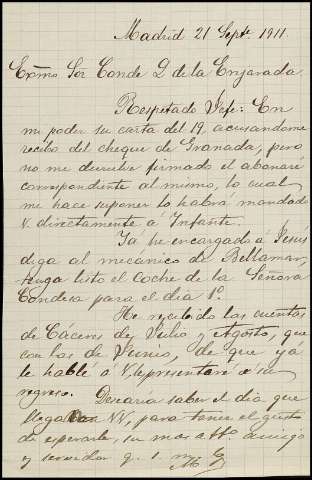 Madrid 21 Septe 1911.
Exmo Sor Conde D de la Enjarada
Respetado Jefe: En
mi poder su carta del 19, acusandome
recibo del cheque de Granada, pero
no me devuelve firmado el abonaré
correspondiente al mismo, lo cual
me hace suponer lo habrá mandado
V. directamente á Infante.
Ya he encargado á Jesús
diga al mecanico de Bellamar,
tenga listo el coche de la Señora
Condesa para el dia 1º.
He recibido las cuentas
de Cáceres de Julio y Agosto, que
con las de Junio, de que yá
le hablé á V. representaré á su
regreso. Desearia saber el dia que
llegan VV, para tener el gusto
de esperarle, su mas affmo amigo
y servidor q. s. m.